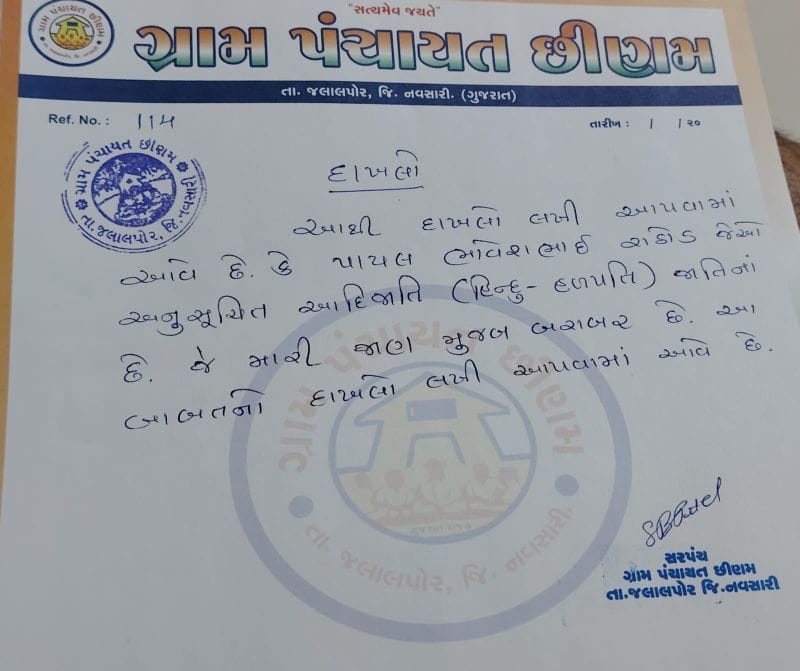 "સત્યમેવ જયતે"
ગ્રામ પંચાયત છીણમ
તા. જલાલપોર, જિ. નવસારી. (ગુજરાત)
Ref. No. : 114
તારીખ : / /૨૦
ગ્રામ પંચાયત છીણમ
તા. જલાલપોર, જિ. નવસારી
દાખલો
આથી દાખલો લખી આપવામાં
આવે છે. કે પાયલ ભાવેશભાઈ રાઠોડ જેઓ
અનુસૂચિત આદિજાતિ (હિન્દુ- હળપતિ) જાતિનાં
છે. જે મારી જાણ મુજબ બરાબર છે. આ
બાબતનો દાખલો લખી આપવામાં આવે છે.
ગ્રામ પંચાયત છીણમ
તા. જલાલપોર, જિ. નવસારી.
SBPatel
સરપંચ
ગ્રામ પંચાયત છીણમ
તા.જલાલપોર જિ.નવસારી